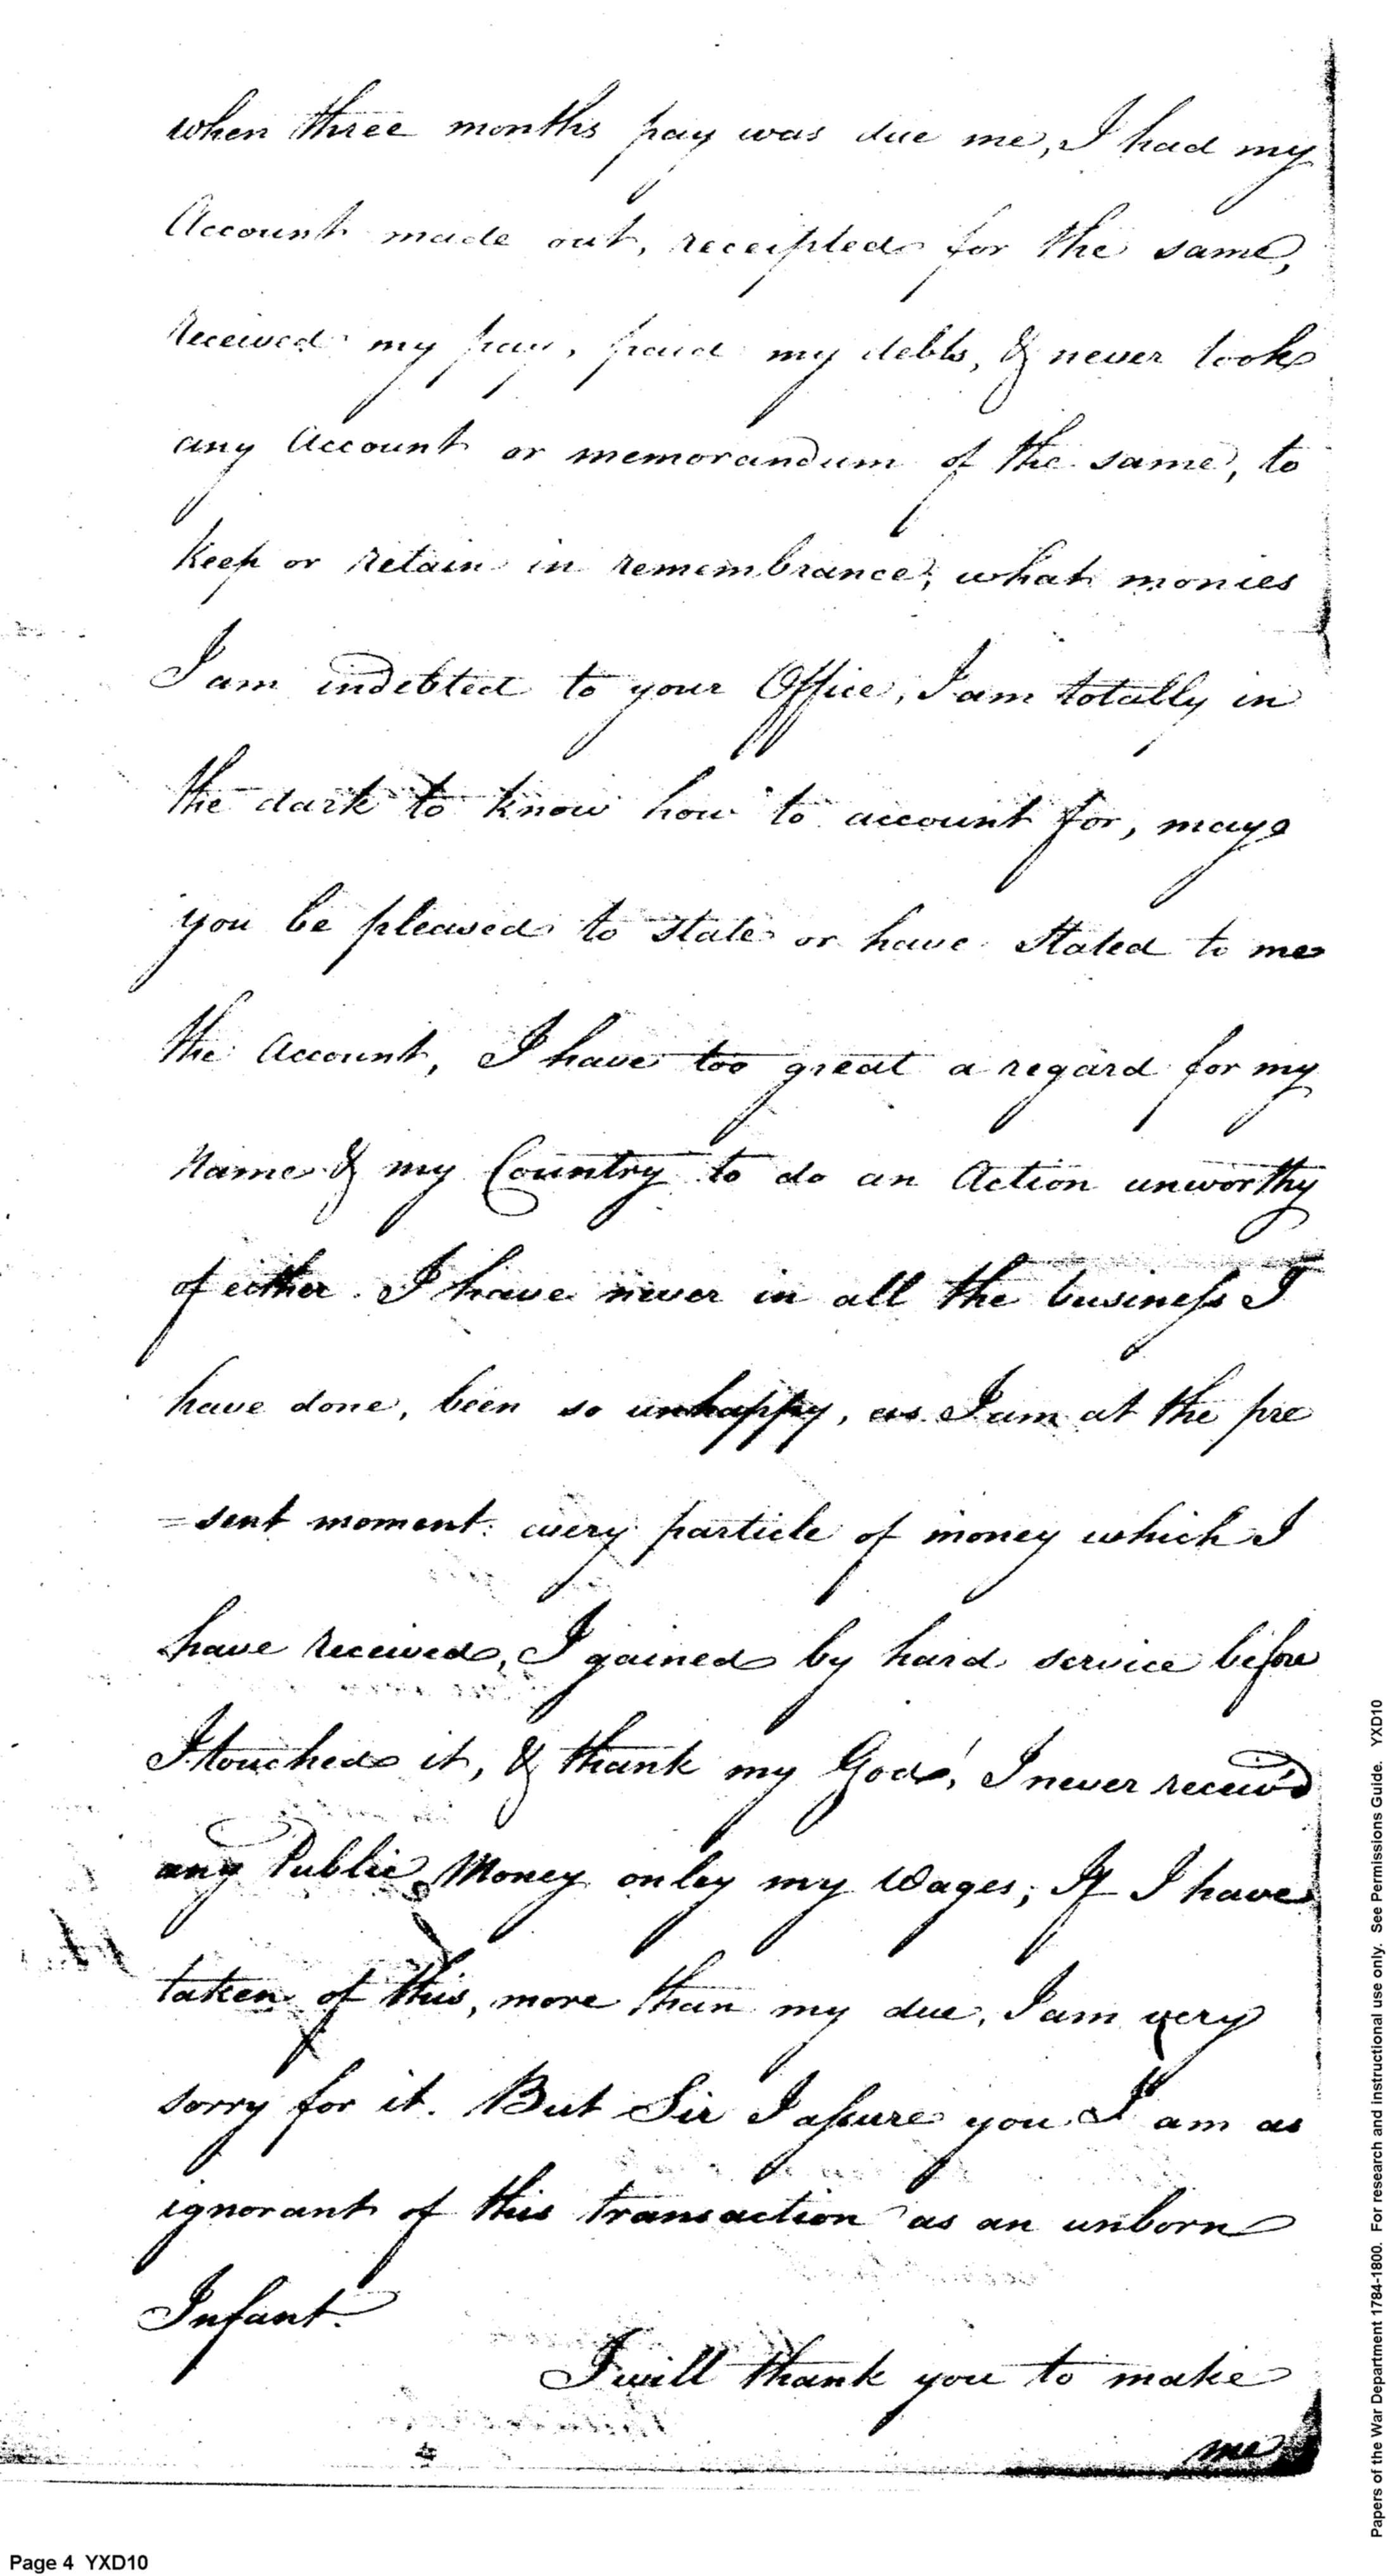 when three months pay was due me, I had my
Account made out, receipted for the same,
received my pay, paid my debts, & never took
any Account or memorandum of the same, to
keep or retain in remembrance; what monies
I am indebted to your Office, I am totally in
the dark to know how to account for, may
you be pleased to state or have stated to me
the Account, I have too great a regard for my
Name & my Country to do an Action unworthy
of either. I have never in all the business I
have done, been so unhappy, as I am at the pre
=sent moment: every particle of money which I
have received, I gained by hard service before
I touched it, & thank my God! I never receiv'd
any Public Money onley my Wages; If I have
taken of this, more than my due, I am very
sorry for it. But Sir I assure you I am as
ignorant of this transaction as an unborn
Infant.
I will thank you to make
me
Page 4 YXD10
Papers of the War Department 1784-1800. For research and instructional use only. See Permissions Guide. YXD10